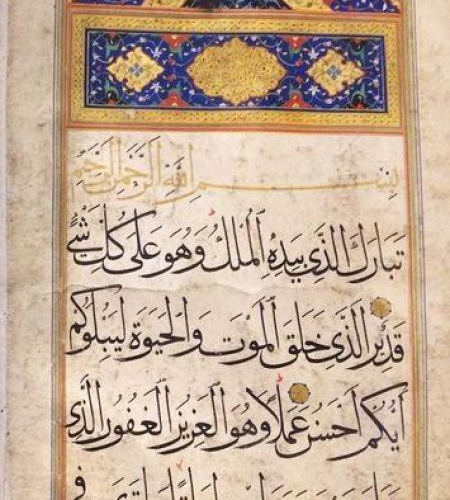 بِسْمِ اللَّهِ الرَّحْمَٰنِ الرَّحِيمِ
تَبَارَكَ الَّذِي بِيَدِهِ الْمُلْكُ وَهُوَ عَلَى كُلِّ شَيْءٍ
قَدِيرٌ الَّذِي خَلَقَ الْمَوْتَ وَالْحَيَوةَ لِيَبْلُوَكُمْ
أَيُّكُمْ أَحْسَنُ عَمَلًا وَهُوَ الْعَزِيزُ الْغَفُورُ الَّذِي